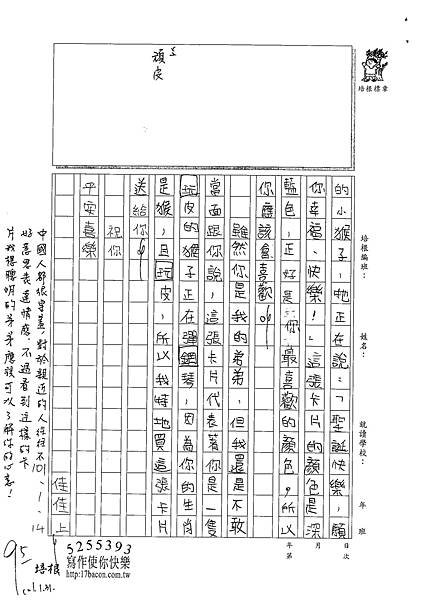 頑皮
培根標章
日 月 年
次 第
年 班
就讀學校：
姓名：
培根編班：
的小猴子，牠正在說：「聖誕快樂，願
你幸福、快樂！」這張卡片的顏色是深
藍色，正好是你最喜歡的顏色，所以
你應該會喜歡吧！
雖然你是我的弟弟，但我還是不敢
當面跟你說，這張卡片代表著你是一隻
玩皮的猴子正在彈鋼琴，因為你的生肖
是猴，且玩皮，所以我特地買這張卡片
送給你吧！
祝你
平安喜樂
佳佳上
101、1、14
中國人都很含蓄，對於親近的人往往不
好意思表達情感，不過看到這樣的卡
片我想聰明的弟弟應該可以了解你的心意！
95
101.1.31.
培根
5255393
寫作使你快樂
http://17bacon.com.tw